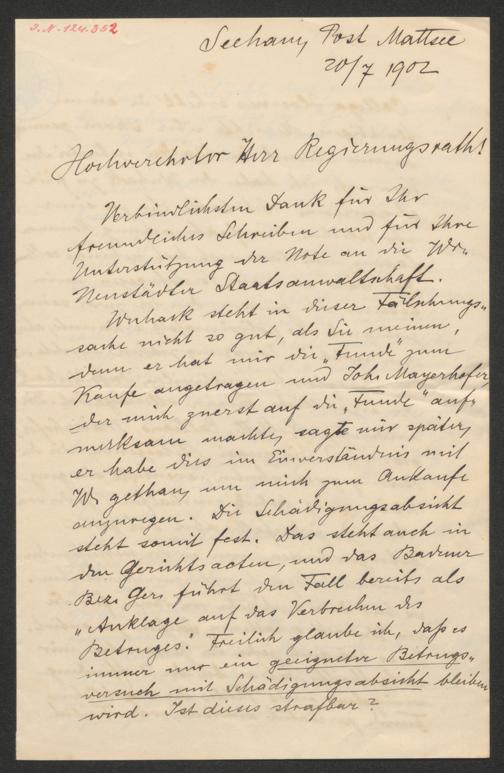 J.N. 124.352
Seeham, Post Mattsee
20/7 1902
Hochverehrter Herr Regierungsrath!
Verbindlichsten Dank für Ihr
freundliches Schreiben und für Ihre
Unterstützung der Note an die Wr.
Neustädter Staatsanwaltschaft.
steht in dieser Fälschungs-
sache nicht so gut, als Sie meinen,
denn er hat mir die „Funde" zum
Kaufe angetragen und Joh. Mayerhofer,
der mich zuerst auf die „Funde" auf-
merksam machte, sagte mir später,
er habe dies im Einverständnis mit
W. gethan, um mich zum Ankaufe
anzuregen. Die Schädigungsabsicht
steht somit fest. Das steht auch in
den Gerichtsacten, und das Badener
Bez. Ger. führt den Fall bereits als
„Anklage auf das Verbrechen des
Betruges". Freilich glaube ich, daß es
immer nur ein geeigneter Betrugs-
versuch mit Schädigungsabsicht bleiben
wird. Ist dieses strafbar?